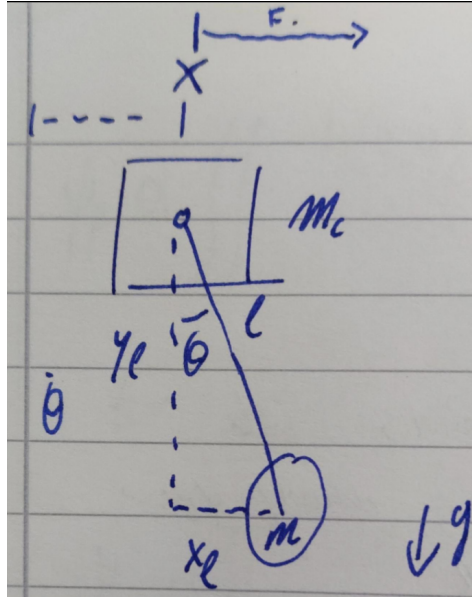 F.
X
m_c
y_l θ l
θ̇
x_l m g